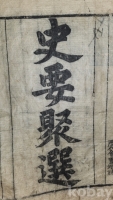 史要聚選
kobay